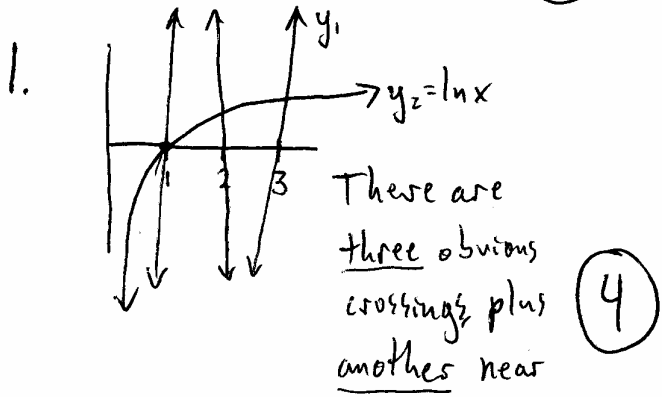 1.
y₁
y₂=lnx
1 2 3
There are
three obvious
crossings, plus
another near
4